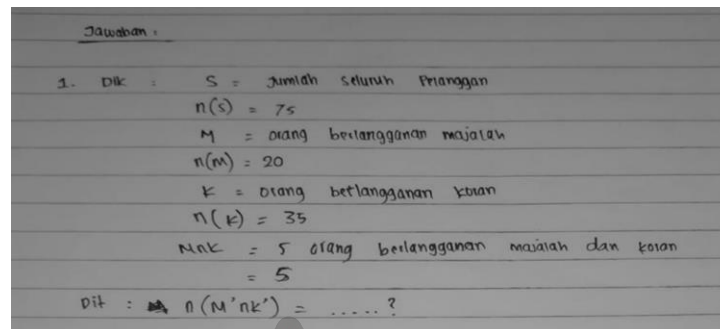 Jawaban :
1. Dik : S = Jumlah seluruh Prlanggan
n(s) = 75
M = orang berlangganan majalah
n(M) = 20
K = orang berlangganan koran
n(K) = 35
M∩K = 5 orang berlangganan majalah dan koran
= 5
Dit : n(M'∩K') = .....?